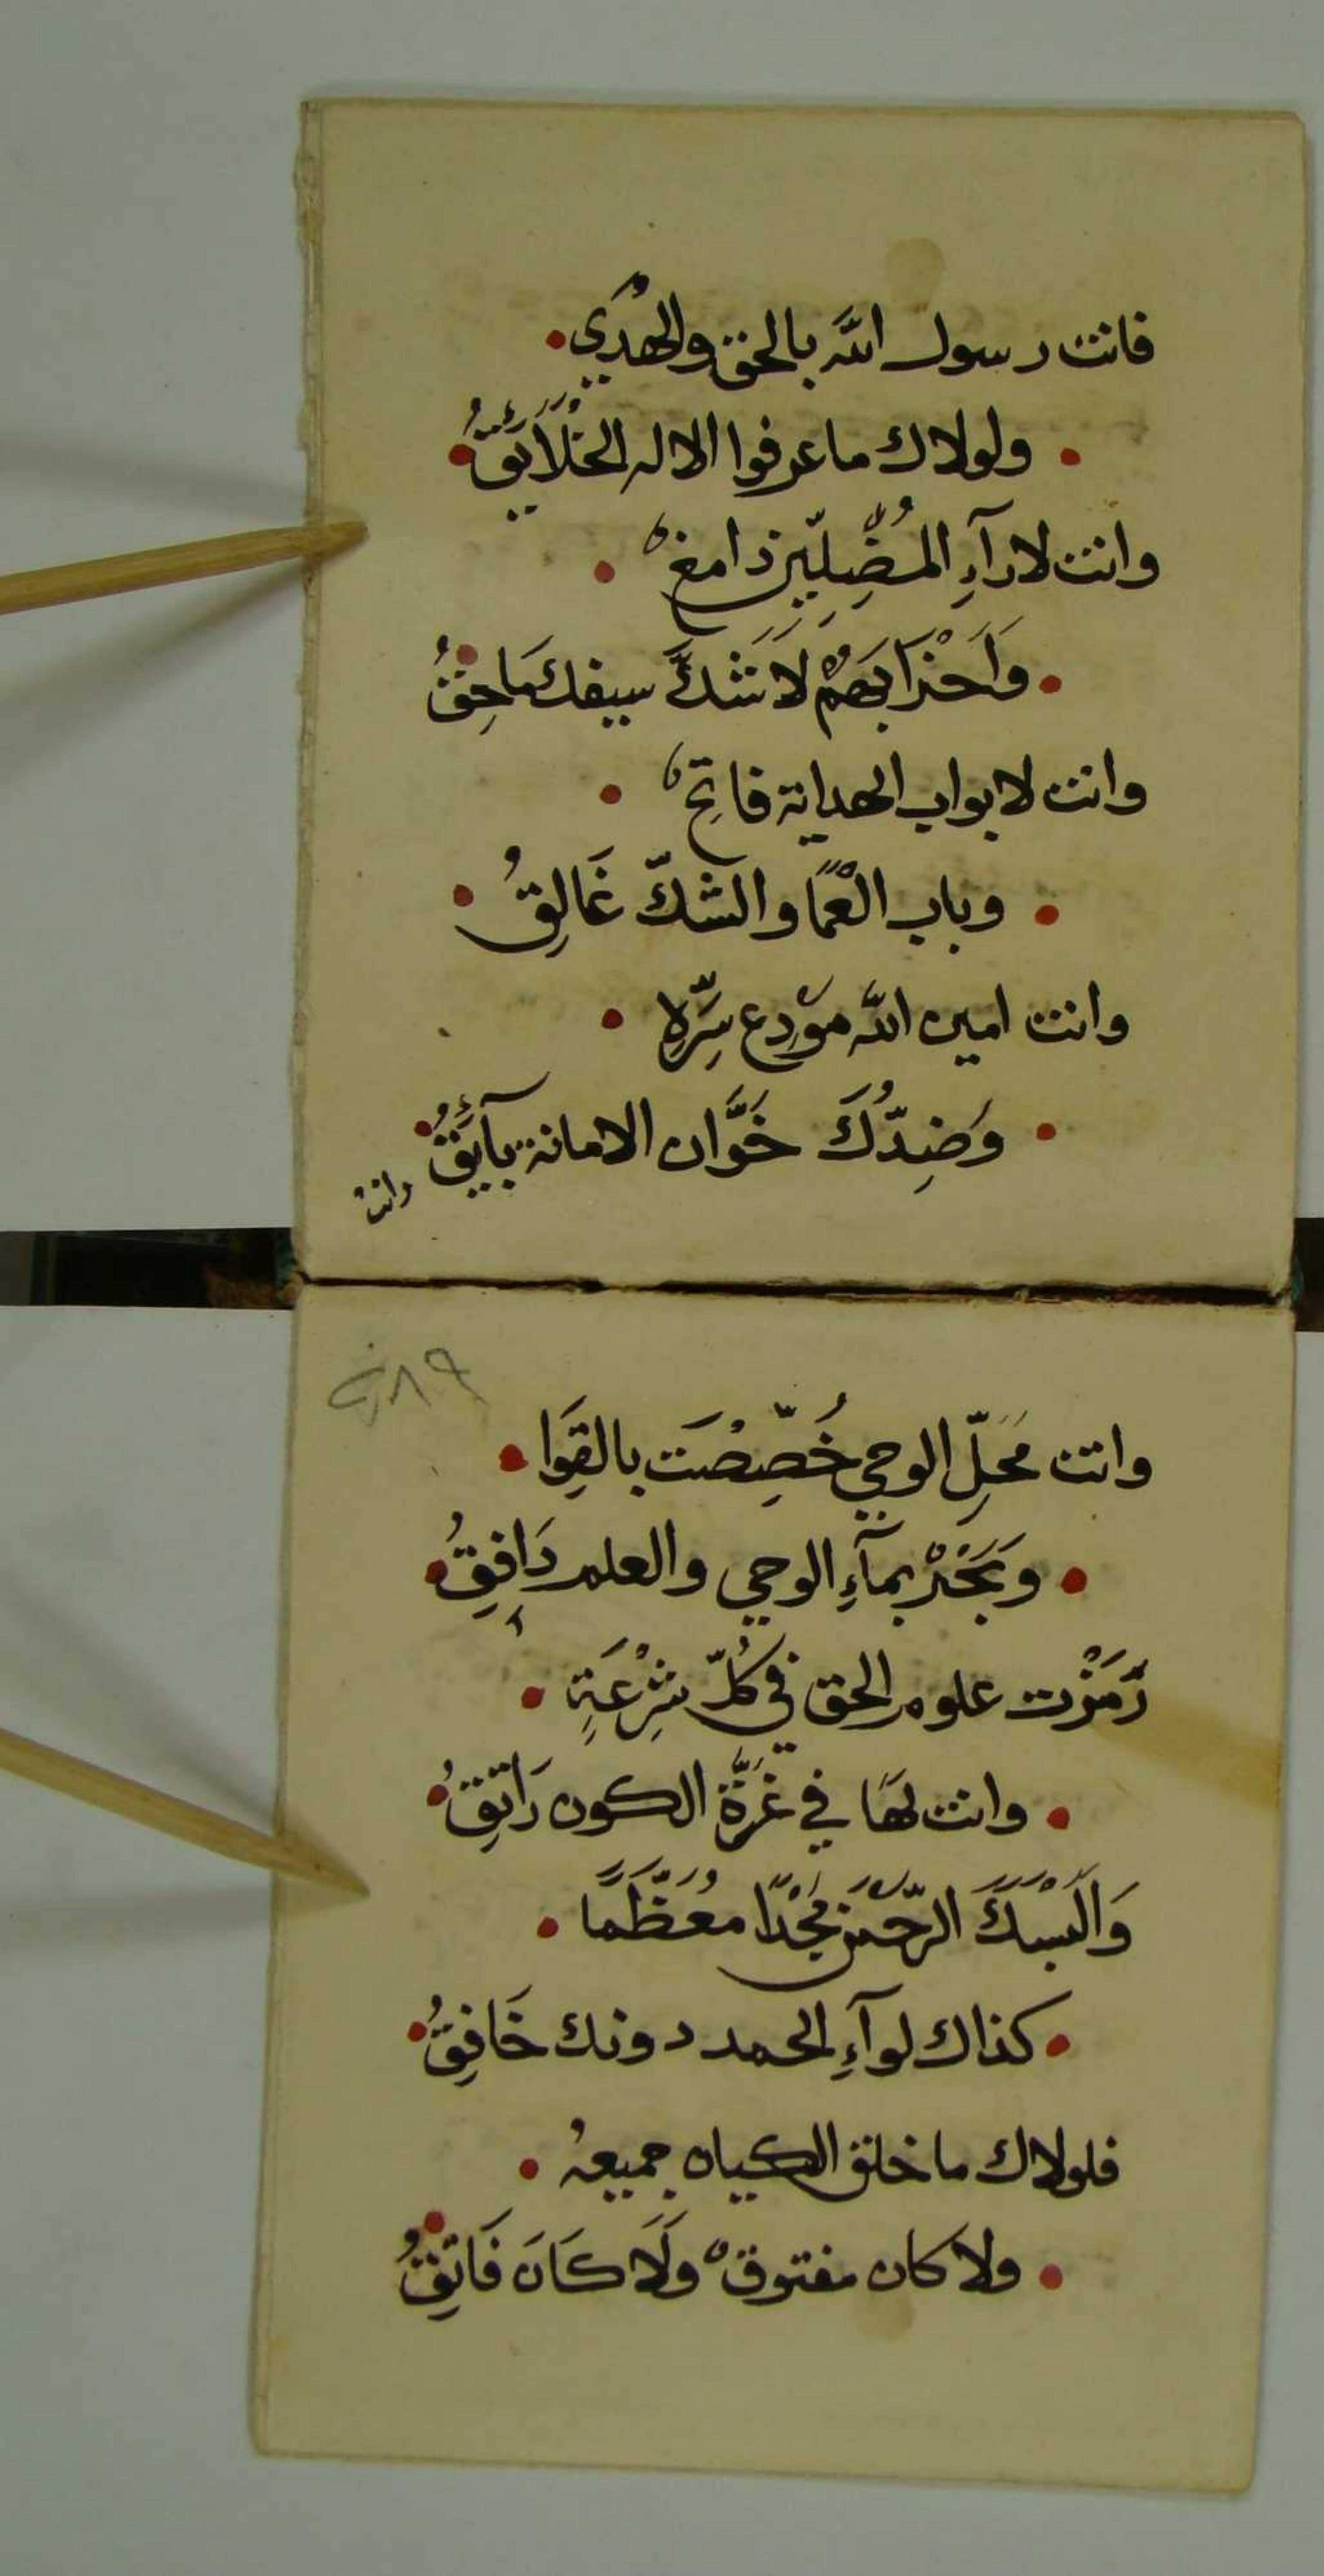 فانت رسول الله بالحق والهُدَي
ولولاك ما عرفوا الاله الخْلَائِقُ
وانت لارآءِ المُضِلِّين دامغ
وَاَحْزَابَهمْ لَا شَكَّ سيفك مَاحِقُ
وانت لابواب الهداية فاتِح
وباب الْعَمَا والشكّ غَالِقُ
وانت امين الله مودِع سِّرِهِ
وَضِدُّكَ خَوَّان الامانة بآئِقُ
وانت
وانت مَحلِّ الوحي خُصِّصْتَ بالقِوَا
وَبَحْرْ بمآءِ الوحي والعلم دَافِقُ
رَمَزْت علوم الحق في كُلّ شِرْعَةٍ
وانت لهَا في غُرَّة الكون رَاتِقُ
وَاَلْبَسَكَ الرّحمَن مَجْدًا مُعَظَّمًا
كذاك لوآءِ الحمد دونك خَافِقُ
فلولاك ما خلق الكيان جميعهُ
ولا كان مفتوق وَلَا كَانَ فَاتِقُ